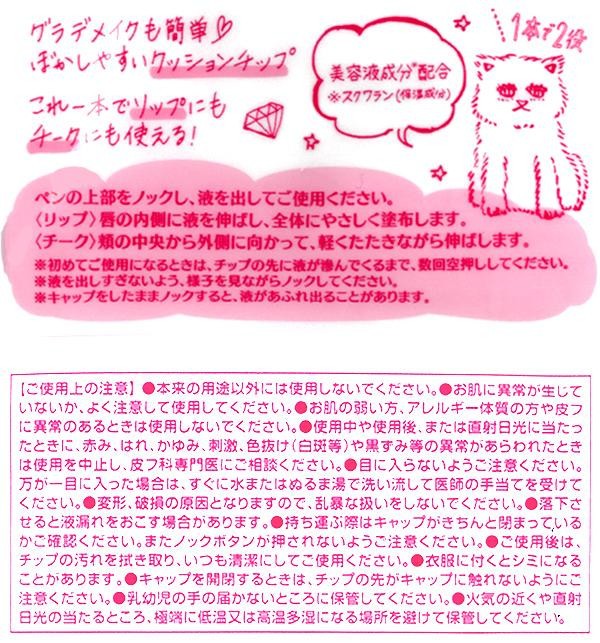 グラデメイクも簡単♡
ぼかしやすいクッションチップ
これ一本でリップにも
チークにも使える!
美容液成分※配合
※スクワラン(保湿成分)
1本で2役
ペンの上部をノックし、液を出してご使用ください。
〈リップ〉唇の内側に液を伸ばし、全体にやさしく塗布します。
〈チーク〉頬の中央から外側に向かって、軽くたたきながら伸ばします。
※初めてご使用になるときは、チップの先に液が滲んでくるまで、数回空押ししてください。
※液を出しすぎないよう、様子を見ながらノックしてください。
※キャップをしたままノックすると、液があふれ出ることがあります。
【ご使用上の注意】●本来の用途以外には使用しないでください。●お肌に異常が生じて
いないか、よく注意して使用してください。●お肌の弱い方、アレルギー体質の方や皮フ
に異常のあるときは使用しないでください。●使用中や使用後、または直射日光に当たっ
たときに、赤み、はれ、かゆみ、刺激、色抜け(白斑等)や黒ずみ等の異常があらわれたとき
は使用を中止し、皮フ科専門医にご相談ください。●目に入らないようご注意ください。
万が一目に入った場合は、すぐに水またはぬるま湯で洗い流して医師の手当てを受けて
ください。●変形、破損の原因となりますので、乱暴な扱いをしないでください。●落下
させると液漏れをおこす場合があります。●持ち運ぶ際はキャップがきちんと閉まっている
かご確認ください。またノックボタンが押されないようご注意ください。●ご使用後は、
チップの汚れを拭き取り、いつも清潔にしてご使用ください。●衣服に付くとシミになる
ことがあります。●キャップを開閉するときは、チップの先がキャップに触れないようにご
注意ください。●乳幼児の手の届かないところに保管してください。●火気の近くや直射
日光の当たるところ、極端に低温又は高温多湿になる場所を避けて保管してください。